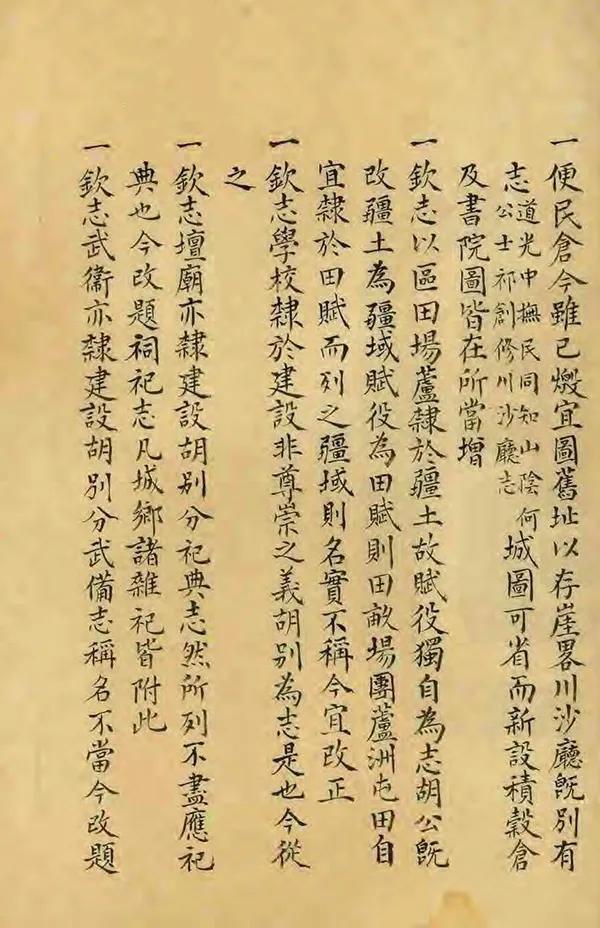 一便民倉今雖已燬宜圖舊址以存崖畧川沙廳旣別有
志道光中撫民同知山陰何公士祁創修川沙廳志城圖可省而新設積穀倉
及書院圖皆在所當增
一欽志以區田場蘆隸於疆土故賦役獨自為志胡公旣
改疆土為疆域賦役為田賦則田畝場團蘆洲屯田自
宜隸於田賦而列之疆域則名實不稱今宜改正
一欽志學校隸於建設非尊崇之義胡別為志是也今從
之
一欽志壇廟亦隸建設胡别分祀典志然所列不盡應祀
典也今改題祠祀志凡城鄉諸雜祀皆附此
一欽志武衞亦隸建設胡别分武備志稱名不當今改題